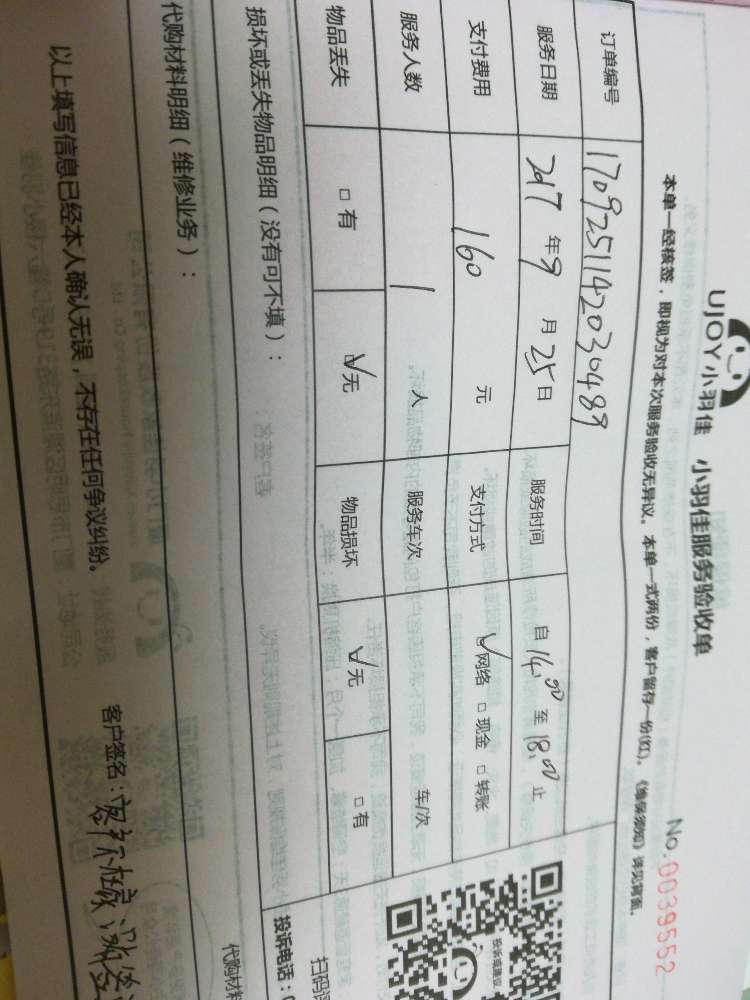 UJOY小羽佳 小羽佳服务验收单
No.0039552
本单一经核签，即视为对本次服务验收无异议。本单一式两份，客户留存一份(红)。《维保须知》详见背面。
订单编号 1709251142030489
服务日期 2017年9月25日 服务时间 自14:00至18:00止
支付费用 160元 支付方式 ☑网络 □现金 □转账
服务人数 1人 服务车次 车/次
物品丢失 □有 ☑无 物品损坏 ☑无 □有
损坏或丢失物品明细（没有可不填）：
投诉建议
扫码
投诉电话：0
代购材料明细（维修业务）：
代购材料
以上填写信息已经本人确认无误，不存在任何争议纠纷。 客户签名：